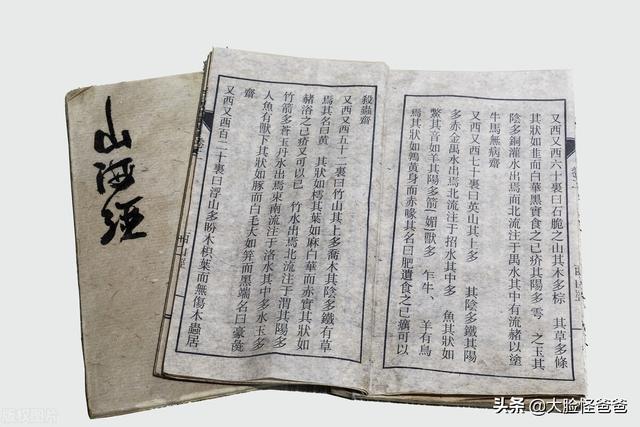 山海經
又西又西六十裏曰石脆之山其木多棕 其草多條
其狀如韭而白華黑實食之已疥其陽多 零 之玉其
陰多銅灌水出焉而北流注于禺水其中有流赭以塗
牛馬無病齋
又西又西七十裏曰英山其上多 其陰多鐵其陽
多赤金禺水出焉北流注于招水其中多 魚其狀如
鱉其音如羊其陽多箭 媚 獸多 牛 羊有鳥
焉其狀如鶉黃身而赤喙其名曰肥遺食之已癘可以
殺蟲齋
又西又西五十二裏曰竹山其上多喬木其陰多鐵有草
焉其名曰黃 其狀如樗其葉如麻白華而赤實其狀如
赭浴之已疥又可以已 竹水出焉北流注于渭其陽多
竹箭多蒼玉丹水出焉東南流注于洛水其中多水玉多
人魚有獸下其狀如豚而白毛大如笄而黑端名曰豪彘
齋
又西又西百二十裏曰浮山多盼木枳葉而無傷木蟲居
西山經
頭条 @大脸怪爸爸
版权图片